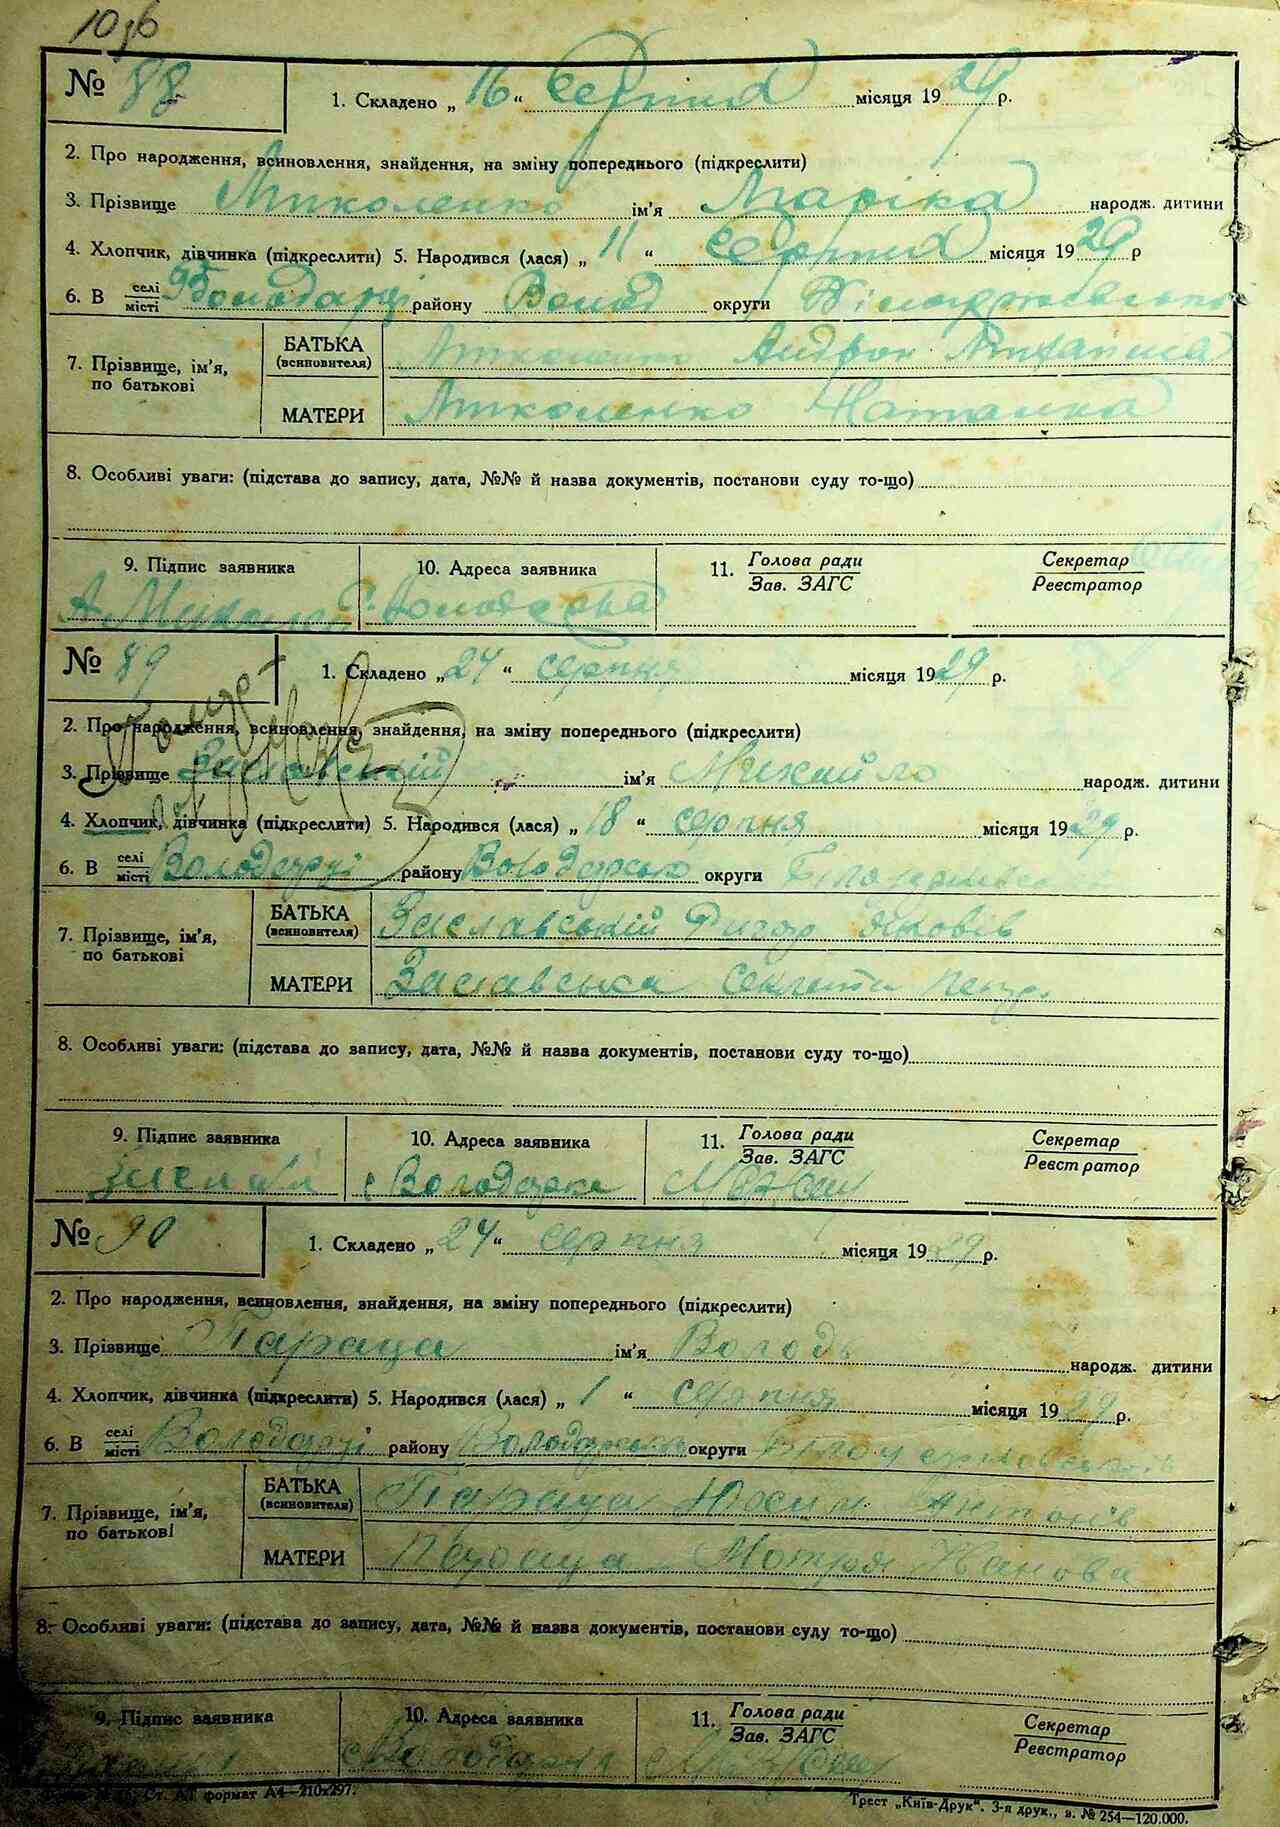 № 88
1. Складено „16“ Серпня місяця 1929 р.
2. Про народження, всиновлення, знайдення, на зміну попереднього (підкреслити)
3. Прізвище Миколенко ім'я Маріка народж. дитини
4. Хлопчик, дівчинка (підкреслити) 5. Народився (лася) „11“ Серпня місяця 1929 р
6. В селі місті Володарці району Волод округи
7. Прізвище, ім'я, по батькові БАТЬКА (всиновителя) Миколенко Андрон
МАТЕРИ Миколенко Наталка
8. Особливі уваги: (підстава до запису, дата, №№ й назва документів, постанови суду то-що)
9. Підпис заявника 10. Адреса заявника 11. Голова ради Зав. ЗАГС Секретар Реєстратор
А. с. Володарка
№ 89
1. Складено „24“ серпня місяця 1929 р.
2. Про народження, всиновлення, знайдення, на зміну попереднього (підкреслити)
3. Прізвище Заславський ім'я Михайло народж. дитини
4. Хлопчик, дівчинка (підкреслити) 5. Народився (лася) „18“ серпня місяця 1929 р.
6. В селі місті Володарці району Володарсько округи
7. Прізвище, ім'я, по батькові БАТЬКА (всиновителя) Заславський Яковів
МАТЕРИ Заславська
8. Особливі уваги: (підстава до запису, дата, №№ й назва документів, постанови суду то-що)
9. Підпис заявника 10. Адреса заявника 11. Голова ради Зав. ЗАГС Секретар Реєстратор
с Володарка
№ 90
1. Складено „24“ серпня місяця 1929 р.
2. Про народження, всиновлення, знайдення, на зміну попереднього (підкреслити)
3. Прізвище ім'я народж. дитини
4. Хлопчик, дівчинка (підкреслити) 5. Народився (лася) „1“ серпня місяця 1929 р.
6. В селі місті Володарці району округи
7. Прізвище, ім'я, по батькові БАТЬКА (всиновителя) Антонів
МАТЕРИ Мотря Иванова
8. Особливі уваги: (підстава до запису, дата, №№ й назва документів, постанови суду то-що)
9. Підпис заявника 10. Адреса заявника 11. Голова ради Зав. ЗАГС Секретар Реєстратор
Ст. АТ формат А4—210х297. Трест „Київ-Друк“. 3-я друк., з. № 254—120.000.